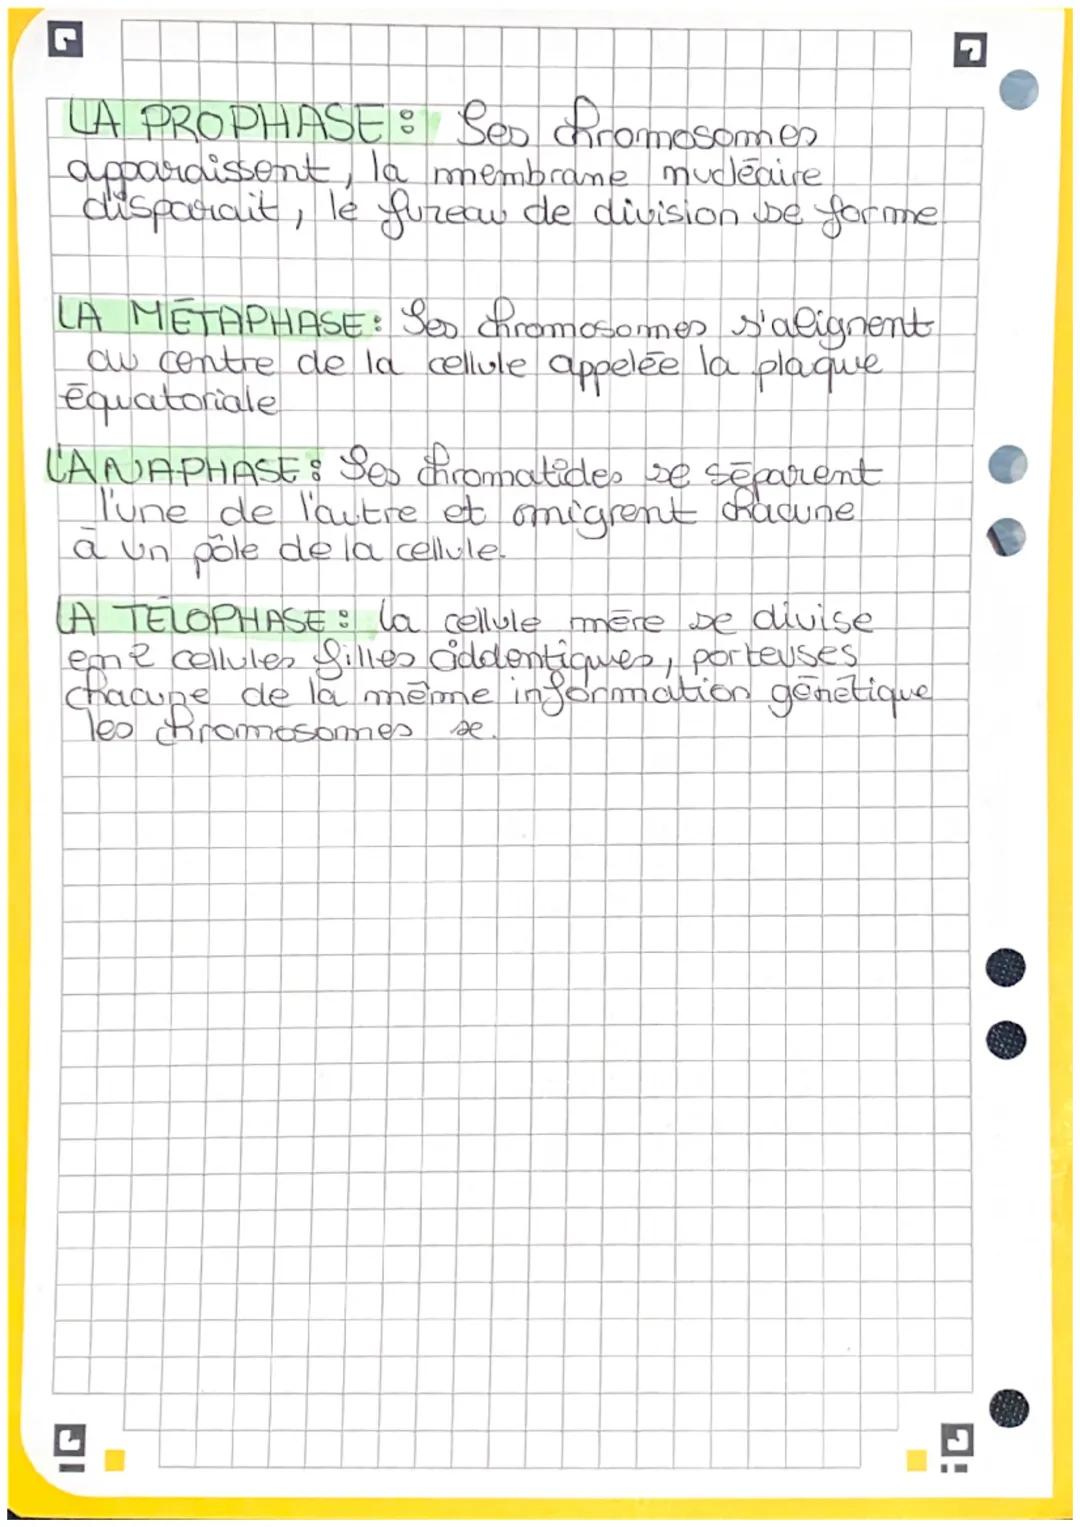 LA PROPHASE : Les chromosomes
apparaissent, la membrane nucléaire
disparait, le fureau de division se forme
LA MÉTAPHASE : Les chromosomes s'alignent
au centre de la cellule appelée la plaque
équatoriale
L'ANAPHASE : Les chromatides se séparent
l'une de l'autre et migrent chacune
à un pôle de la cellule.
LA TÉLOPHASE : la cellule mère se divise
en 2 cellules filles iddentiques, porteuses
chacune de la même information génétique
les chromosomes se.